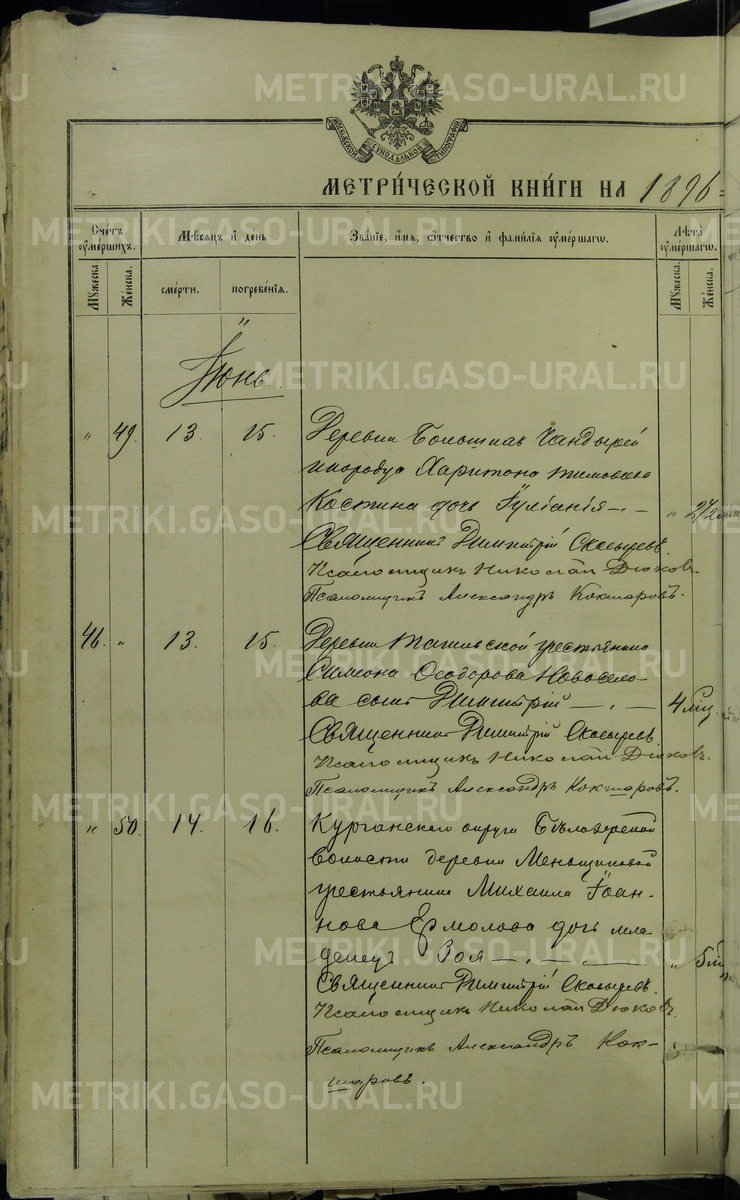 METRIKI.GASO-URAL.RU
МОСКОВСКОЙ СѴНОДАЛЬНОЙ ТИПОГРАФІИ
МЕТРИ́ЧЕСКОЙ КНИ́ГИ НА 1896
Сче́тъ ᲂу҆ме́ршихъ.
Мѣ́сяцъ и҆ де́нь
Зва́ніе, и҆́мя, ѻ҆́тчество и҆ фами́лія ᲂу҆ме́ршагѡ.
Лѣ́та ᲂу҆ме́ршагѡ.
Мꙋ́жеска.
Же́нска.
сме́рти.
погребе́нія.
Мꙋ́жеска.
Же́нска.
Іюнь.
" 49. 13. 15. Деревни Большихъ Чандырей
инородца Харитона
Костина дочь Іуліанія " 2 1/2
Священникъ Димитрій Скосыревъ.
Псаломщикъ Николай Дюковъ.
Псаломщикъ Александръ Кокшаровъ.
46. " 13. 15. Деревни Тагильской крестьянина
Симеона Ѳеодорова Новосело-
ва сынъ Димитрій 4 мѣс.
Священникъ Димитрій Скосыревъ.
Псаломщикъ Николай Дюковъ.
Псаломщикъ Александръ Кокшаровъ.
" 50. 14. 16. Курганскаго округа Бѣлозерской
волости деревни Меньщиковой
крестьянина Михаила Іоан-
нова Ермолова дочь мла-
денецъ Зоя " 5
Священникъ Димитрій Скосыревъ.
Псаломщикъ Николай Дюковъ.
Псаломщикъ Александръ Кок-
шаровъ.